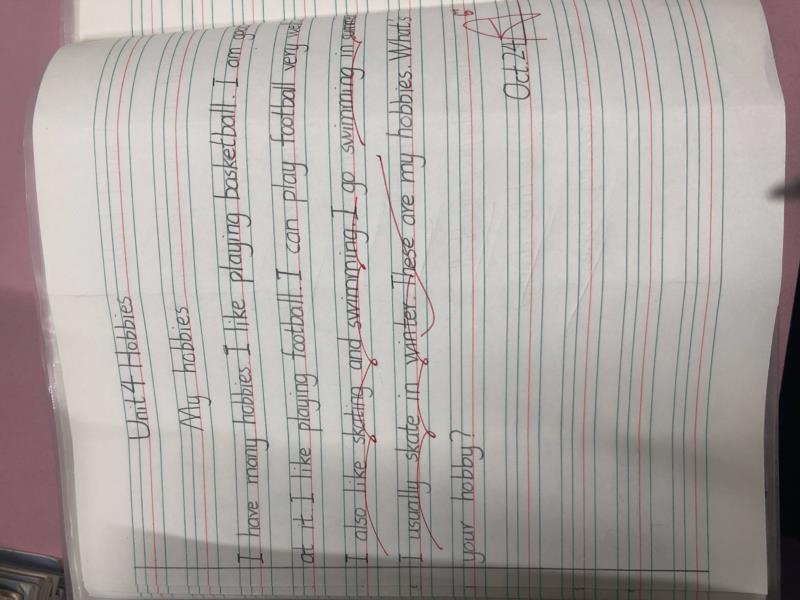 Unit 4 Hobbies
My hobbies
I have many hobbies. I like playing basketball. I am
at it. I like playing football. I can play football very
I also like skating and swimming. I go swimming in
I usually skate in winter. These are my hobbies. What's
your hobby?
Oct. 24